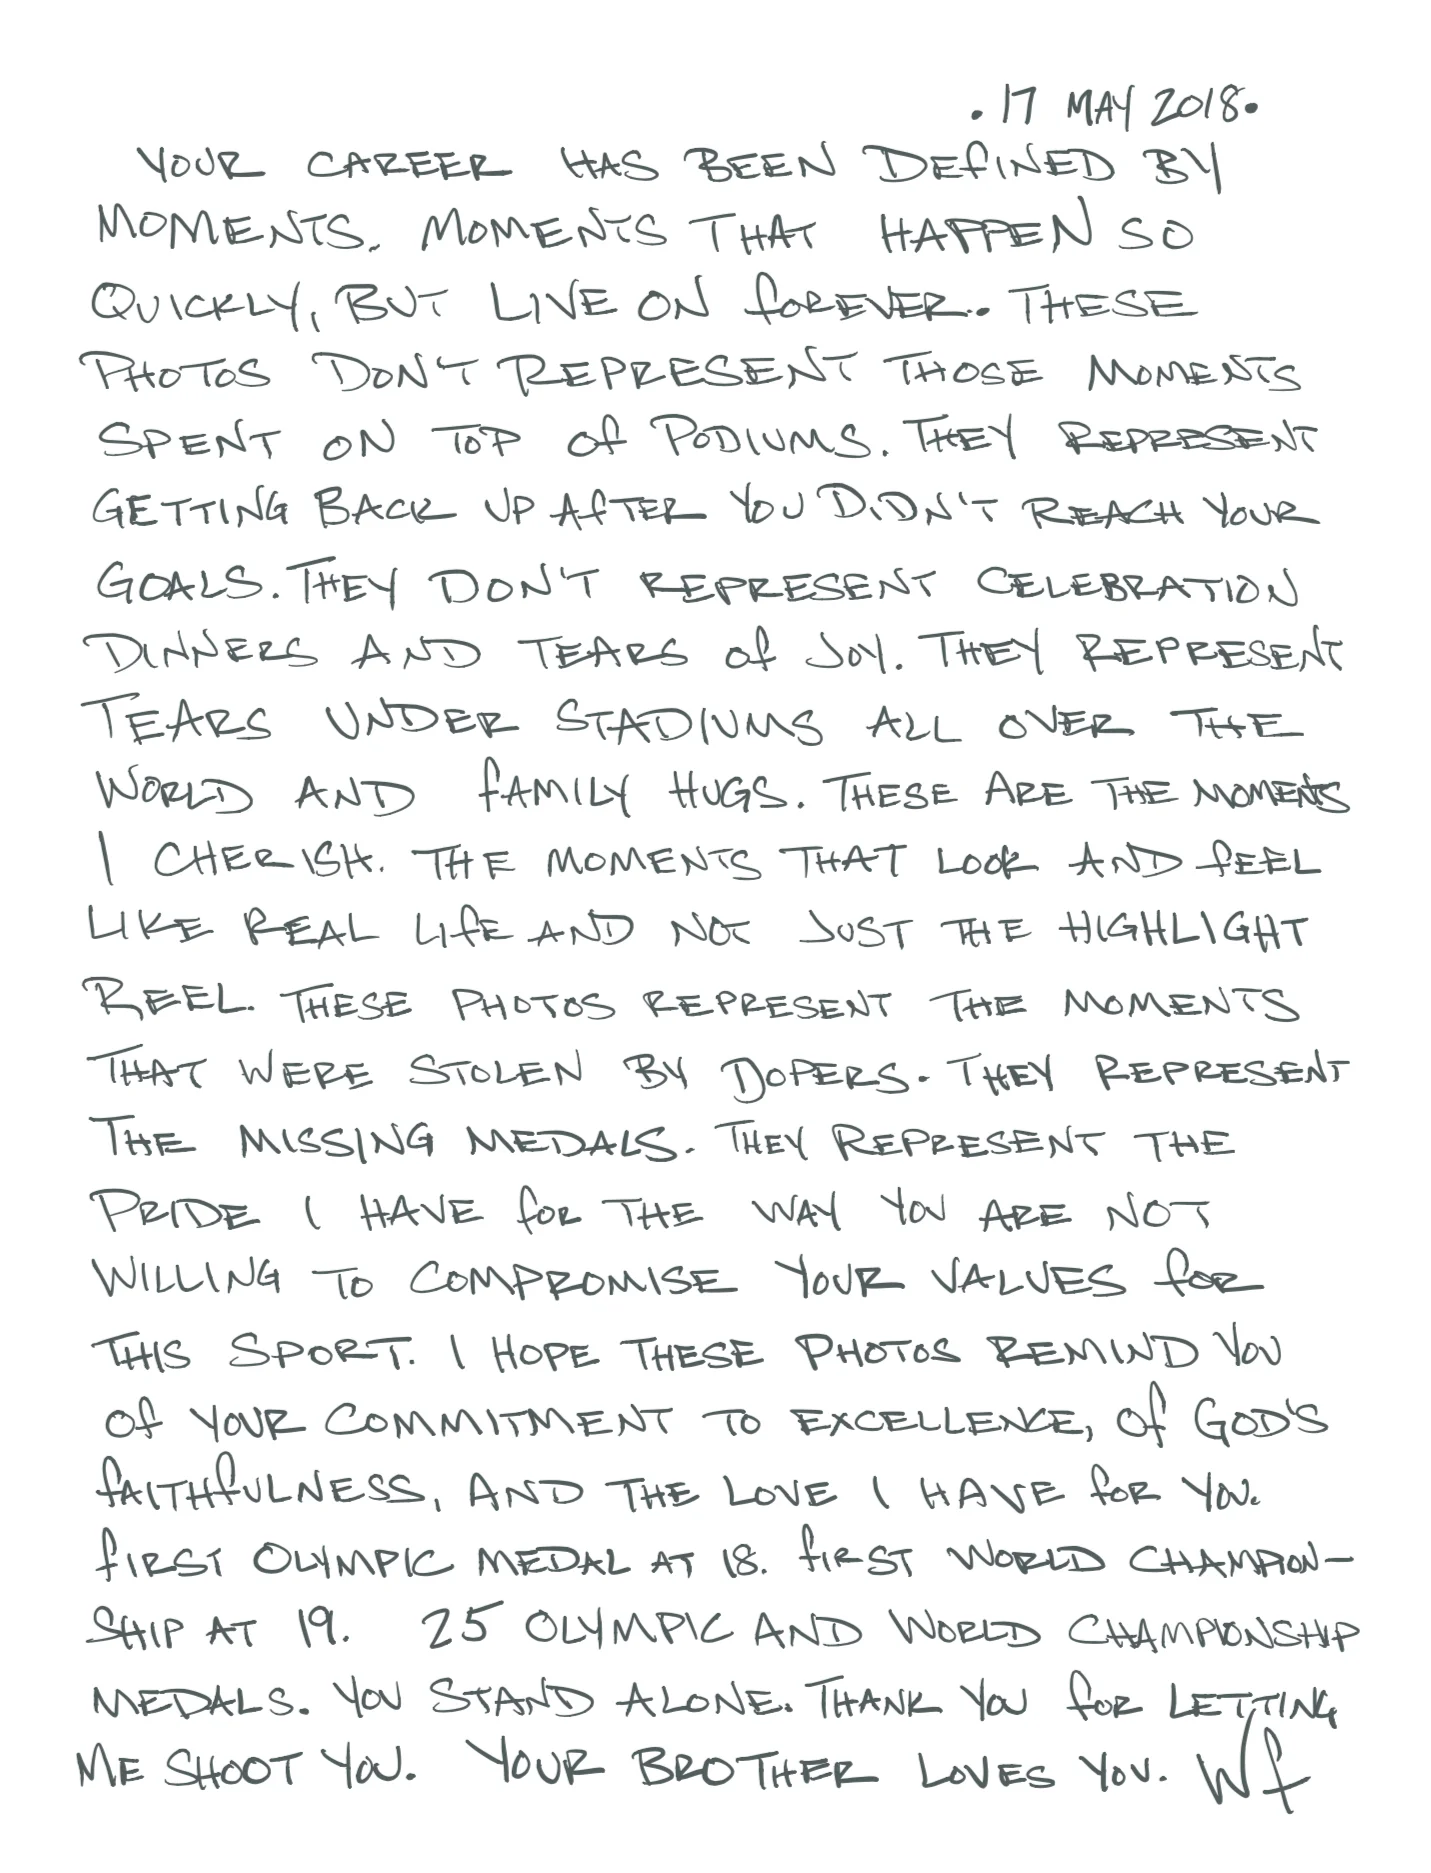 . 17 MAY 2018.
YOUR CAREER HAS BEEN DEfINED BY
MOMENTS. MOMENTS THAT HAPPEN SO
QUICKLY, BUT LIVE ON fOREVER. THESE
PHOTOS DON'T REPRESENT THOSE MOMENTS
SPENT ON TOP Of PODIUMS. THEY REPRESENT
GETTING BACK UP AfTER YOU DIDN'T REACH YOUR
GOALS. THEY DON'T REPRESENT CELEBRATION
DINNERS AND TEARS Of JOY. THEY REPRESENT
TEARS UNDER STADIUMS ALL OVER THE
WORLD AND fAMILY HUGS. THESE ARE THE MOMENTS
I CHERISH. THE MOMENTS THAT LOOK AND fEEL
LIKE REAL LIfE AND NOT JUST THE HIGHLIGHT
REEL. THESE PHOTOS REPRESENT THE MOMENTS
THAT WERE STOLEN BY DOPERS. THEY REPRESENT
THE MISSING MEDALS. THEY REPRESENT THE
PRIDE I HAVE fOR THE WAY YOU ARE NOT
WILLING TO COMPROMISE YOUR VALUES fOR
THIS SPORT. I HOPE THESE PHOTOS REMIND YOU
Of YOUR COMMITMENT TO EXCELLENCE, Of GOD'S
fAITHfULNESS, AND THE LOVE I HAVE fOR YOU.
fIRST OLYMPIC MEDAL AT 18. fIRST WORLD CHAMPION-
SHIP AT 19. 25 OLYMPIC AND WORLD CHAMPIONSHIP
MEDALS. YOU STAND ALONE. THANK YOU fOR LETTING
ME SHOOT YOU. YOUR BROTHER LOVES YOU. Wf